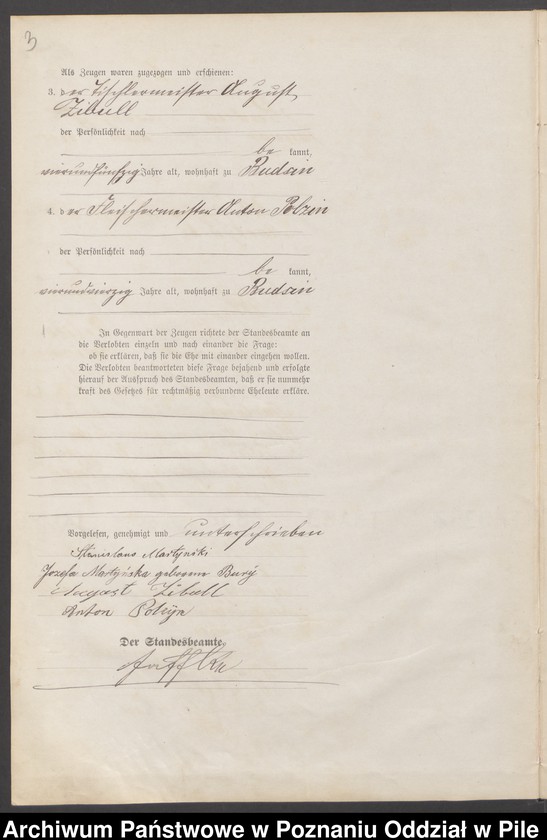 3
Als Zeugen waren zugezogen und erschienen:
3. der Tischlermeister August
Zibell
der Persönlichkeit nach
be kannt,
vierundfünfzig Jahre alt, wohnhaft zu Budsin
4. der Fleischermeister Anton Polzin
der Persönlichkeit nach
be kannt,
vierundvierzig Jahre alt, wohnhaft zu Budsin
In Gegenwart der Zeugen richtete der Standesbeamte an
die Verlobten einzeln und nach einander die Frage:
ob sie erklären, daß sie die Ehe mit einander eingehen wollen.
Die Verlobten beantworteten diese Frage bejahend und erfolgte
hierauf der Ausspruch des Standesbeamten, daß er sie nunmehr
kraft des Gesetzes für rechtmäßig verbundene Eheleute erkläre.
Vorgelesen, genehmigt und unterschrieben
Stanislaus Martyński
Josefa Martyńska geborene Bury
August Zibell
Anton Polzin
Der Standesbeamte.
Archiwum Państwowe w Poznaniu Oddział w Pile